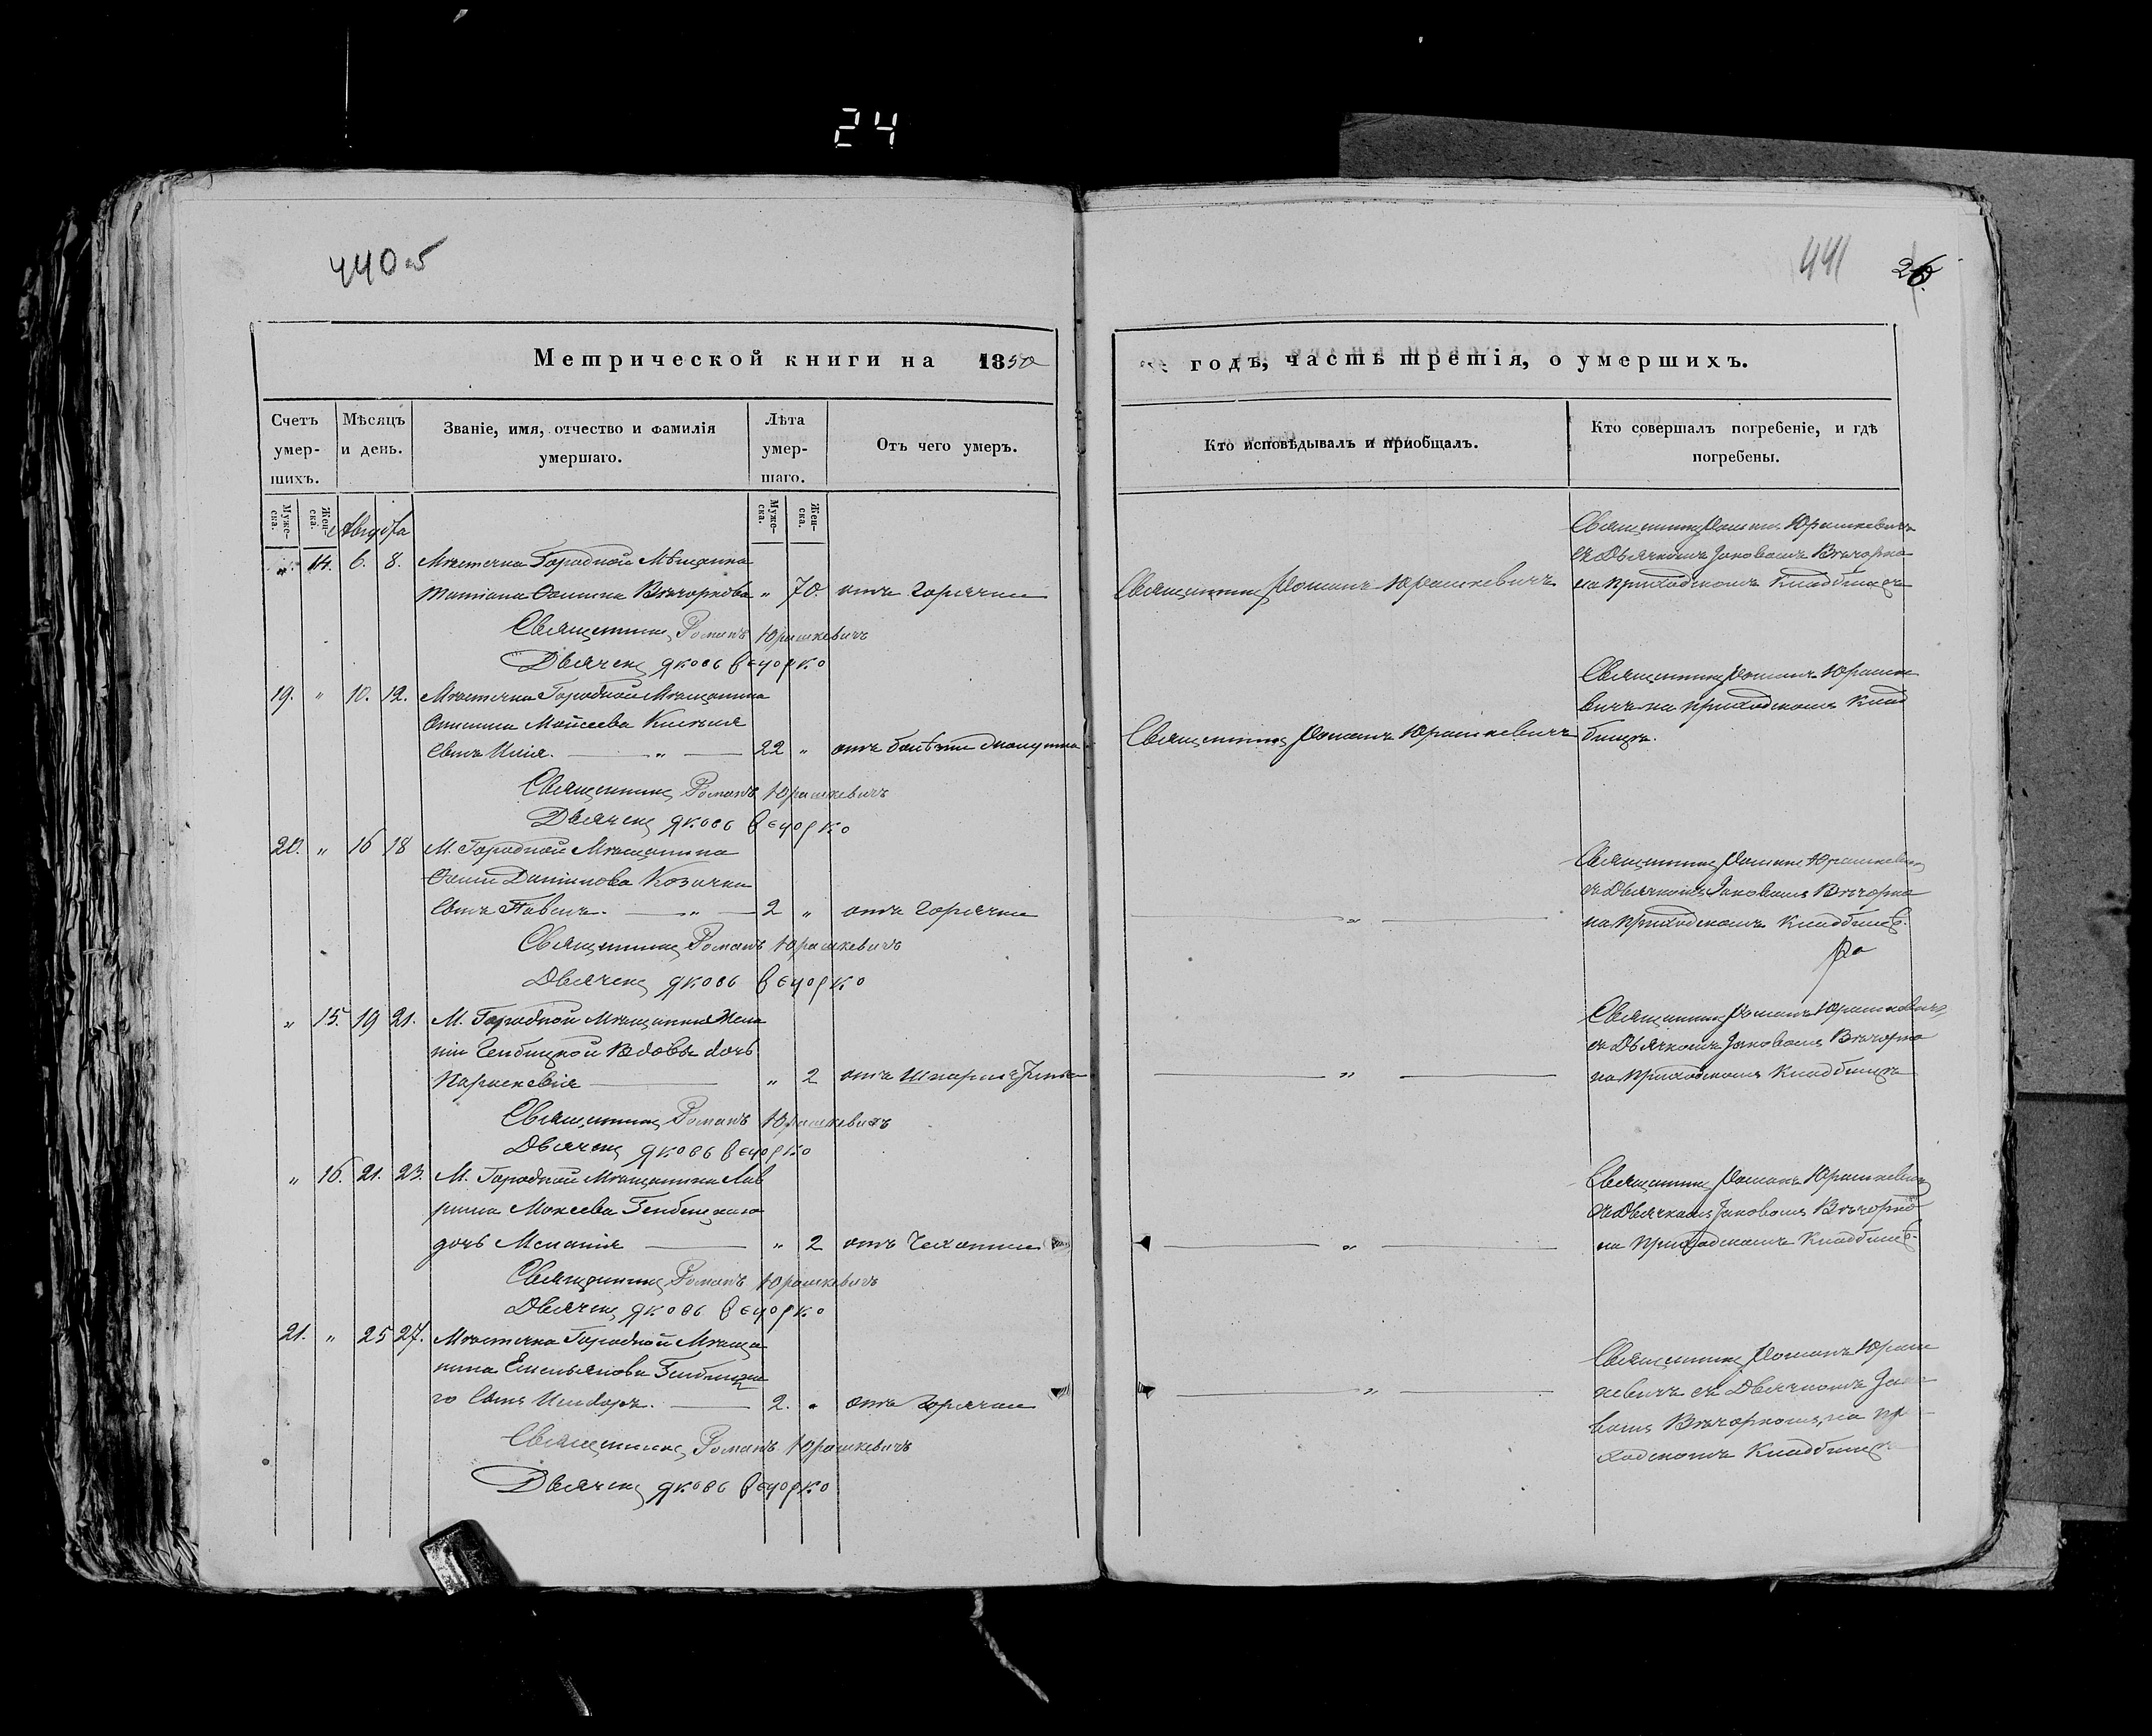 24
440 об
441
26.
Метрической книги на 1850
годъ, часть третія, о умершихъ.
Счетъ умер-шихъ.
Мѣсяцъ и день.
Званіе, имя, отчество и фамилія умершаго.
Лѣта умер-шаго.
Отъ чего умеръ.
Кто исповѣдывалъ и пріобщалъ.
Кто совершалъ погребеніе, и гдѣ погребены.
Муже-ска.
Жен-ска.
Муже-ска.
Жен-ска.
Августа
„ 14. 6. 8. Мѣстечка Городной Мѣщанка
Татіана Осипова Вѣчоркова „ 70. отъ горячки
Священникъ Романъ Юрашкевичъ
Священникъ Романъ Юрашкевичъ
съ Дьячкомъ Іаковомъ Вѣчорко
на приходскомъ кладбищѣ
Священникъ Романъ Юрашкевичъ
Дьячекъ Яковъ Вечорко
19. „ 10. 12. Мѣстечка Городной Мѣщанина
Моисеева
сынъ Илія. „ 22 „ отъ болѣзни
Священникъ Романъ Юрашкевичъ
Священникъ Романъ Юрашке
вичъ на приходскомъ клад
бищѣ.
Священникъ Романъ Юрашкевичъ
Дьячекъ Яковъ Вечорко
20. „ 16 18 М. Городной Мѣщанина
Даніилова Козачка
сынъ Павелъ. „ 2 „ отъ горячки
„
Священникъ Романъ Юрашкевичъ
съ Дьячкомъ Іаковомъ Вѣчорко
на приходскомъ кладбищѣ.
Священникъ Романъ Юрашкевичъ
Дьячекъ Яковъ Вечорко
„ 15. 19 21. М. Городной Мѣщанки Мела
ніи Вдовы дочь
Параскевія „ 2 отъ
„
Священникъ Романъ Юрашкевичъ,
съ Дьячкомъ Іаковомъ Вѣчорко
на приходскомъ кладбищѣ
Священникъ Романъ Юрашкевичъ
Дьячекъ Яковъ Вечорко
„ 16. 21. 23. М. Городной Мѣщанина Лав
рина Мокеева
дочь Меланія „ 2 отъ чахотки
„
Священникъ Романъ Юрашкевичъ
съ Дьячкомъ Іаковомъ Вѣчорко
на приходскомъ кладбищѣ.
Священникъ Романъ Юрашкевичъ
Дьячекъ Яковъ Вечорко
21. „ 25 27. Мѣстечка Городной Мѣща
нина Емельянова
го сынъ Исидоръ. 2. „ отъ горячки
„
Священникъ Романъ Юраш
кевичъ съ Дьячкомъ Іако
вомъ Вѣчоркомъ, на при
ходскомъ кладбищѣ
Священникъ Романъ Юрашкевичъ
Дьячекъ Яковъ Вечорко